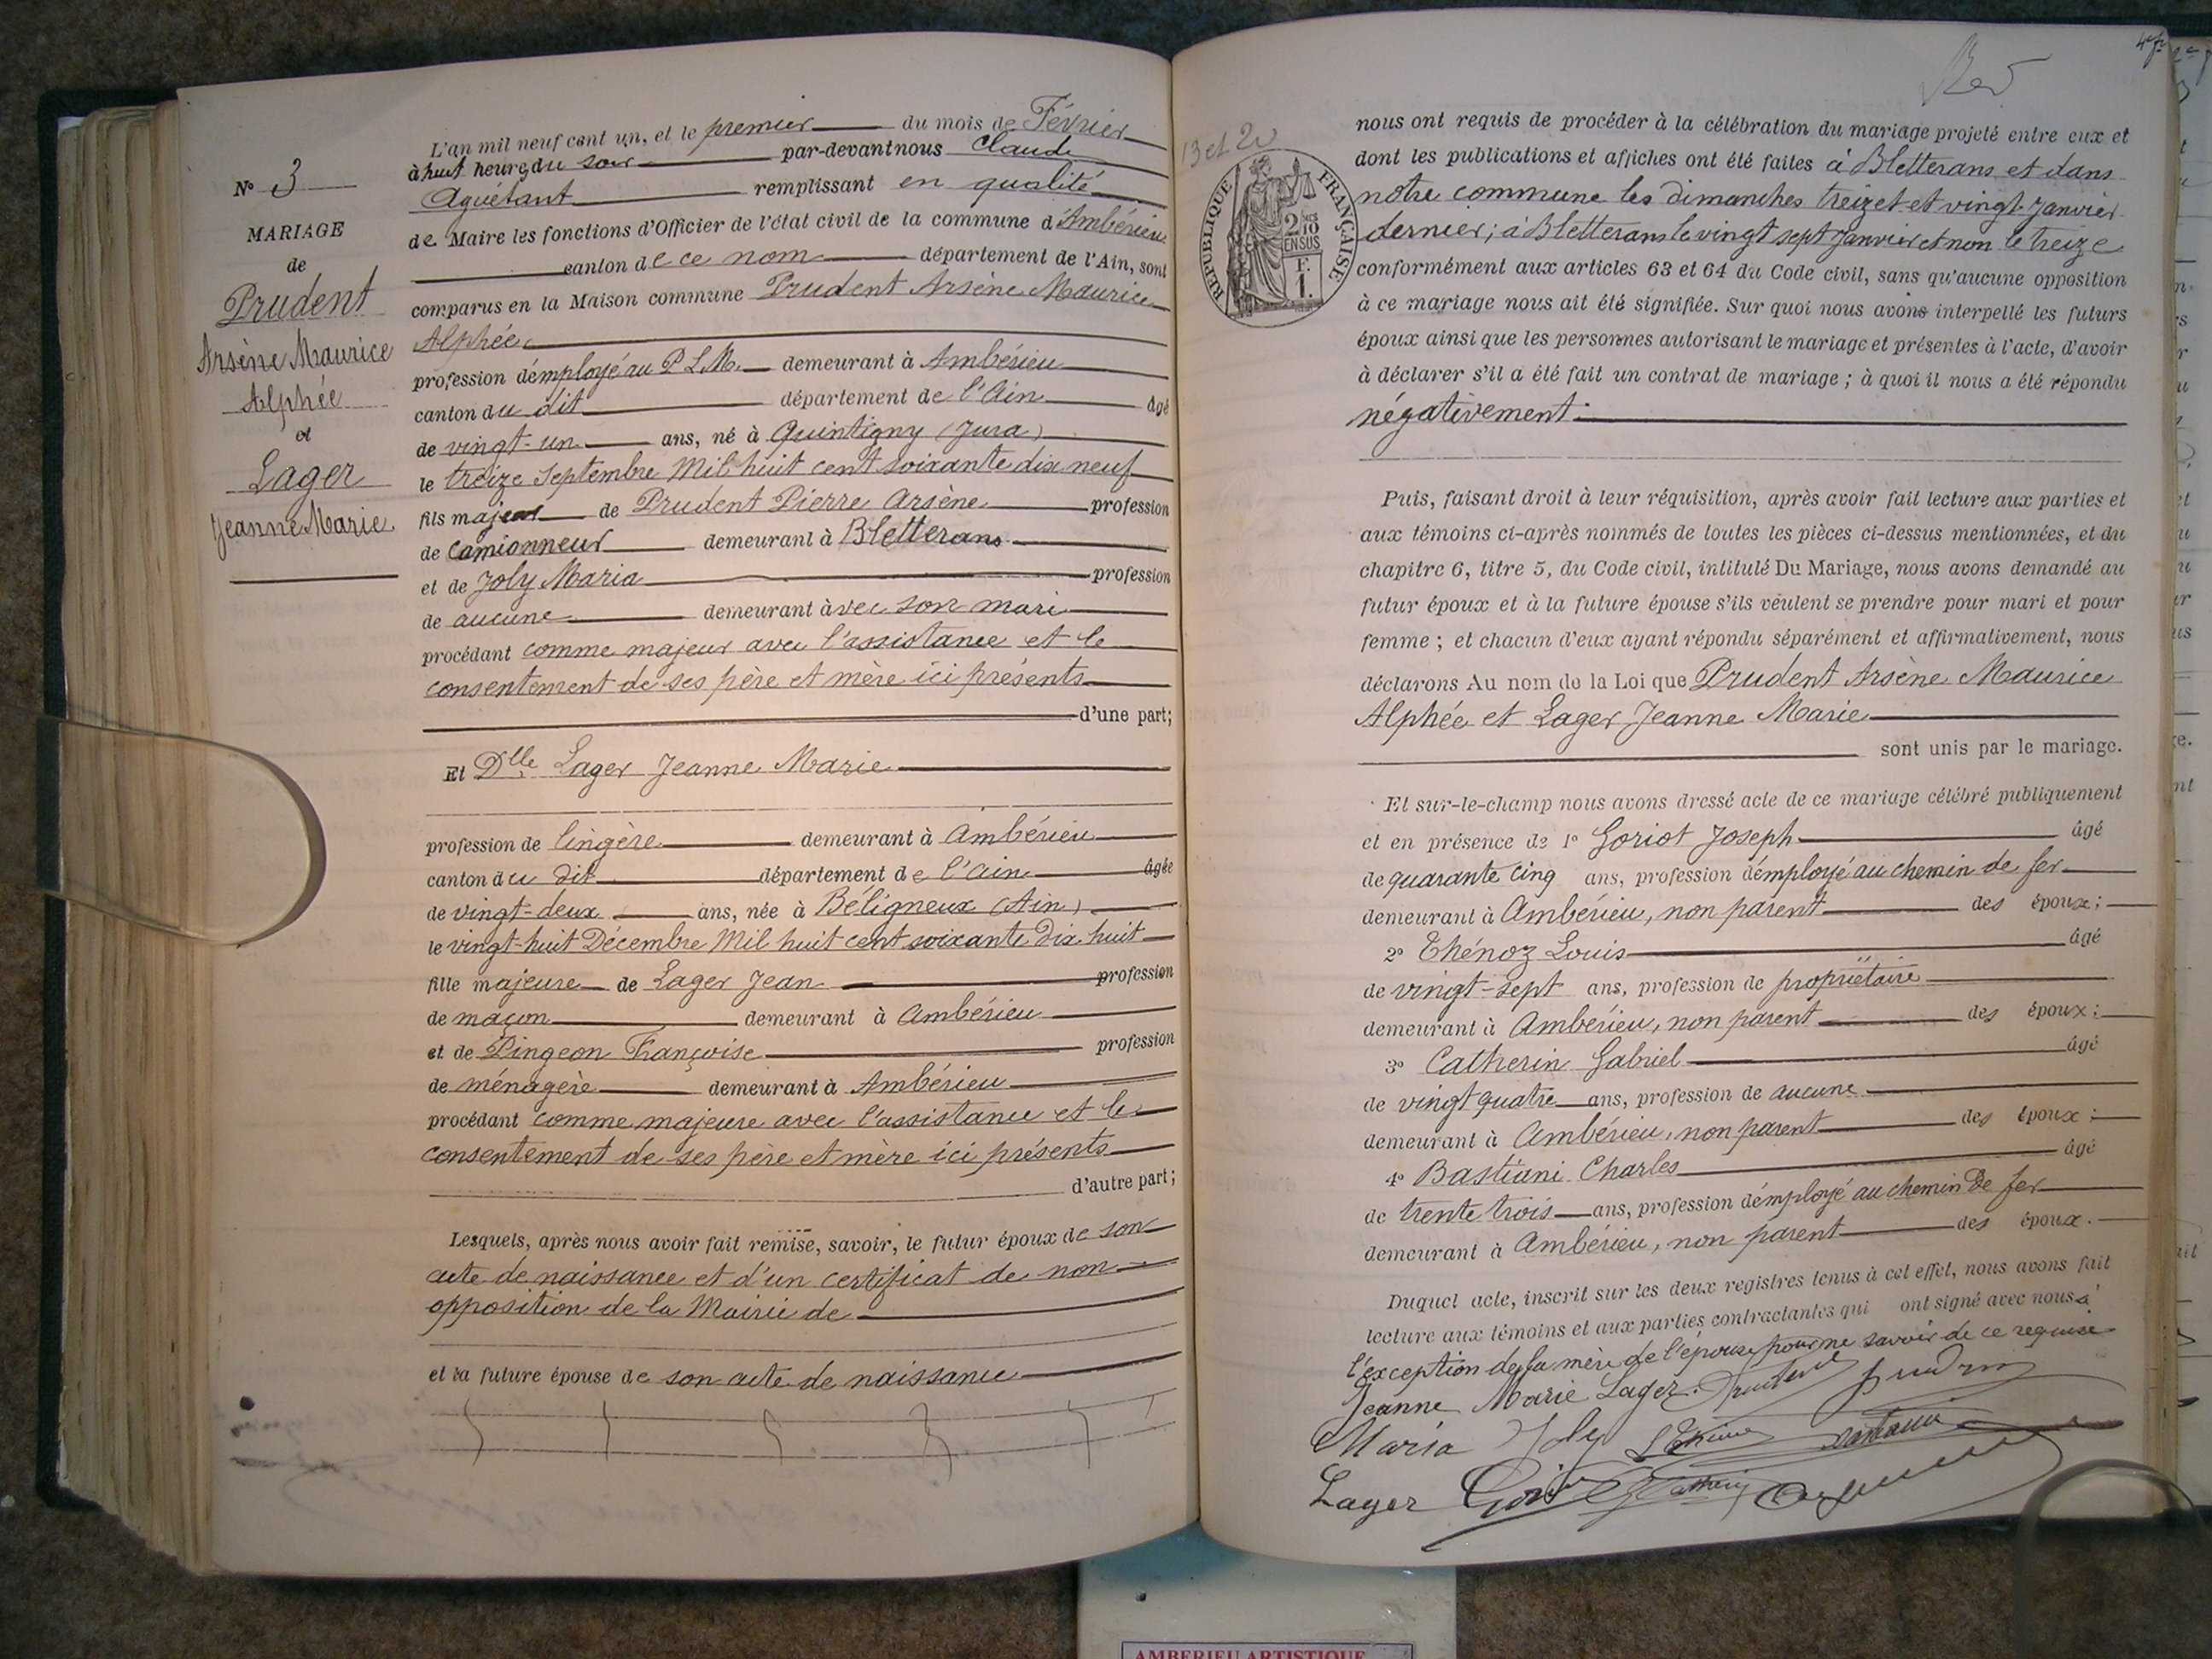 N° 3
MARIAGE
de
Prudent
Arsène Maurice
Alphée
et
Lager
Jeanne Marie
L'an mil neuf cent un, et le premier du mois de Février
à huit heures du soir par-devant nous Claude
Aguétant remplissant en qualité
de Maire les fonctions d'Officier de l'état civil de la commune d'Ambérieu
canton de ce nom département de l'Ain, sont
comparus en la Maison commune Prudent Arsène Maurice
Alphée
profession d'employé au P L M. demeurant à Ambérieu
canton du dit département de l'Ain âgé
de vingt-un ans, né à Quintigny (Jura)
le treize Septembre Mil huit cent soixante dix neuf
fils majeur de Prudent Pierre Arsène profession
de camionneur demeurant à Bletterans
et de Joly Maria profession
de aucune demeurant avec son mari
procédant comme majeur avec l'assistance et le
consentement de ses père et mère ici présents
d'une part;
Et Dlle Lager Jeanne Marie
profession de lingère demeurant à Ambérieu
canton du dit département de l'Ain âgée
de vingt-deux ans, née à Béligneux (Ain)
le vingt-huit Décembre Mil huit cent soixante Dix huit
fille majeure de Lager Jean profession
de maçon demeurant à Ambérieu
et de Pingeon Françoise profession
de ménagère demeurant à Ambérieu
procédant comme majeure avec l'assistance et le
consentement de ses père et mère ici présents
d'autre part;
Lesquels, après nous avoir fait remise, savoir, le futur époux de son
acte de naissance et d'un certificat de non
opposition de la Mairie de
et la future épouse de son acte de naissance
13 et 20
RÉPUBLIQUE FRANÇAISE
2/10
EN SUS
F.
1.
nous ont requis de procéder à la célébration du mariage projeté entre eux et
dont les publications et affiches ont été faites à Bletterans et dans
notre commune les dimanches treize et vingt Janvier
dernier; à Bletterans le vingt sept Janvier et non le treize
conformément aux articles 63 et 64 du Code civil, sans qu'aucune opposition
à ce mariage nous ait été signifiée. Sur quoi nous avons interpellé les futurs
époux ainsi que les personnes autorisant le mariage et présentes à l'acte, d'avoir
à déclarer s'il a été fait un contrat de mariage; à quoi il nous a été répondu
négativement.
Puis, faisant droit à leur réquisition, après avoir fait lecture aux parties et
aux témoins ci-après nommés de toutes les pièces ci-dessus mentionnées, et du
chapitre 6, titre 5, du Code civil, intitulé Du Mariage, nous avons demandé au
futur époux et à la future épouse s'ils veulent se prendre pour mari et pour
femme; et chacun d'eux ayant répondu séparément et affirmativement, nous
déclarons Au nom de la Loi que Prudent Arsène Maurice
Alphée et Lager Jeanne Marie
sont unis par le mariage.
Et sur-le-champ nous avons dressé acte de ce mariage célébré publiquement
et en présence de 1° Goriot Joseph âgé
de quarante cinq ans, profession d'employé au chemin de fer
demeurant à Ambérieu, non parent des époux;
2° Thénoz Louis âgé
de vingt-sept ans, profession de propriétaire
demeurant à Ambérieu, non parent des époux;
3° Catherin Gabriel âgé
de vingt quatre ans, profession de aucune
demeurant à Ambérieu, non parent des époux;
4° Bastiani Charles âgé
de trente trois ans, profession d'employé au chemin de fer
demeurant à Ambérieu, non parent des époux.
Duquel acte, inscrit sur les deux registres tenus à cet effet, nous avons fait
lecture aux témoins et aux parties contractantes qui ont signé avec nous à
l'exception de la mère de l'épouse pour ne savoir de ce requise
Jeanne Marie Lager. Prudent
Maria Joly
Lager
AMBERIEU ARTISTIQUE